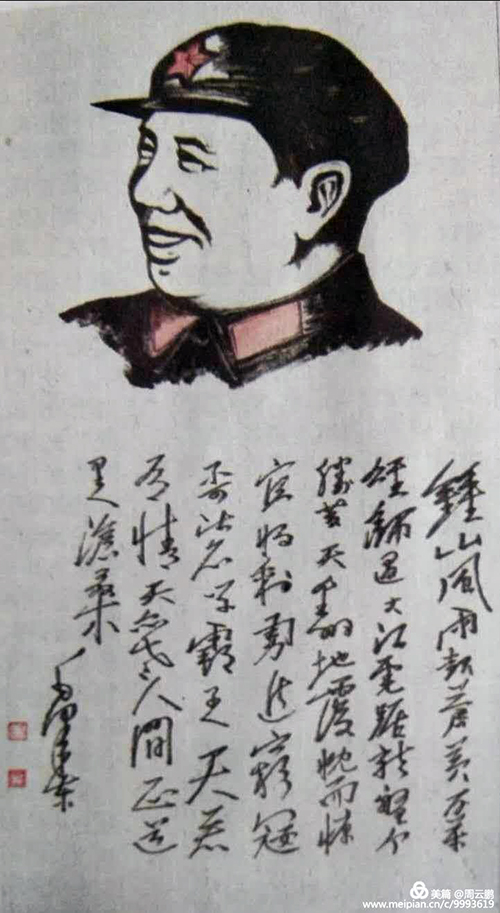 鍾山風雨起蒼黃百萬
雄師過大江虎踞龍盤今
勝昔天翻地覆慨而慷
宜將剩勇追窮寇
不可沽名学霸王天若
有情天亦老人間正道
是滄桑
毛澤东
美篇 @周云鹏
www.meipian.cn/c/9993619